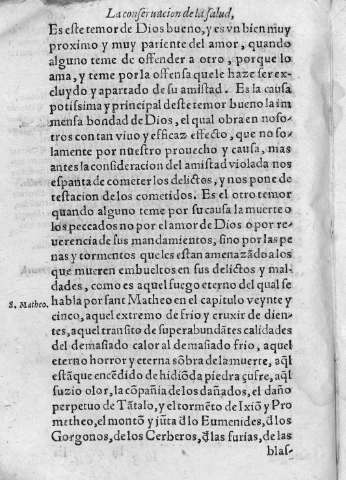 La conseruacion de la salud,
Es este temor de Dios bueno, y es vn bien muy
proximo y muy pariente del amor, quando
alguno teme de offender a otro, porque lo
ama, y teme por la offensa que le haze ser ex-
cluydo y apartado de su amistad. Es la causa
potissima y principal deste temor bueno la im
mensa bondad de Dios, el qual obra en noso-
tros con tan viuo y efficaz effecto, que no so-
lamente por nuestro prouecho y causa, mas
antes la consideracion del amistad violada nos
espanta de cometer los delictos, y nos pone de
testacion de los cometidos. Es el otro temor
quando alguno teme por su causa la muerte o
los peccados no por el amor de Dios o por re-
uerencia de sus mandamientos, sino por las pe
nas y tormentos que les estan amenazãdo a los
que mueren embueltos en sus delictos y mal-
dades, como es aquel fuego eterno del qual se
S. Matheo.
habla por sant Matheo en el capitulo veynte y
cinco, aquel extremo de frio y cruxir de dien-
tes, aquel transito de superabundãtes calidades
del demasiado calor al demasiado frio, aquel
eterno horror y eterna sõbra de la muerte, aq̃l
estãque encẽdido de hidiõda piedra çufre, aq̃l
suzio olor, la cõpañia de los dañados, el daño
perpetuo de Tãtalo, y el tormẽto de Ixiõ y Pro
metheo, el montõ y jũta d̃ lo Eumenides, d̃ los
Gorgonos, de los Cerberos, d̃ las furias, de las
blas-